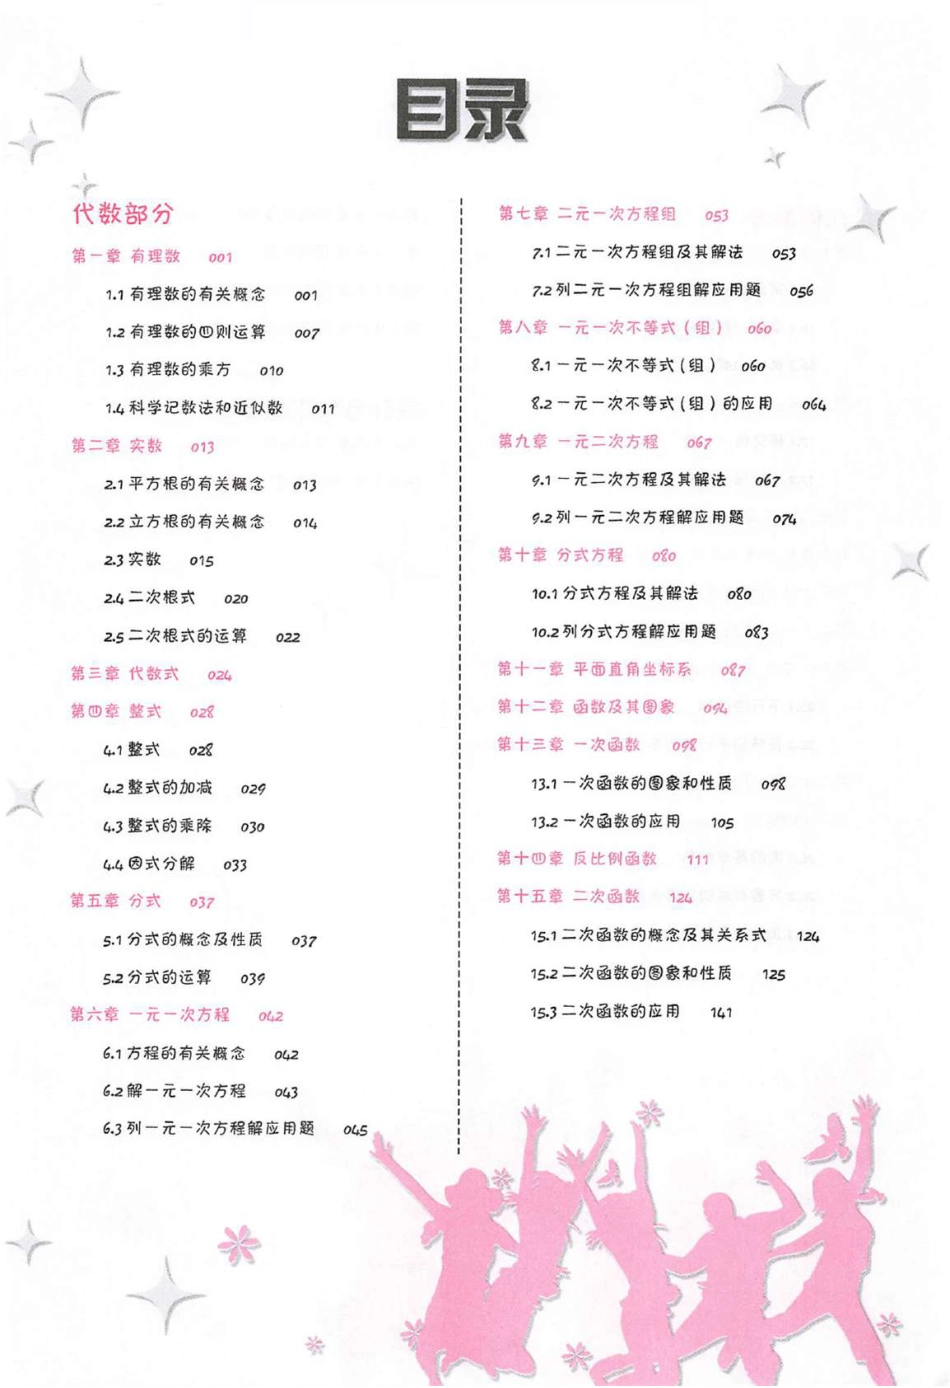 目录
代数部分
第一章 有理数 001
1.1 有理数的有关概念 001
1.2 有理数的四则运算 007
1.3 有理数的乘方 010
1.4 科学记数法和近似数 011
第二章 实数 013
2.1 平方根的有关概念 013
2.2 立方根的有关概念 014
2.3 实数 015
2.4 二次根式 020
2.5 二次根式的运算 022
第三章 代数式 024
第四章 整式 028
4.1 整式 028
4.2 整式的加减 029
4.3 整式的乘除 030
4.4 因式分解 033
第五章 分式 037
5.1 分式的概念及性质 037
5.2 分式的运算 039
第六章 一元一次方程 042
6.1 方程的有关概念 042
6.2 解一元一次方程 043
6.3 列一元一次方程解应用题 045
第七章 二元一次方程组 053
7.1 二元一次方程组及其解法 053
7.2 列二元一次方程组解应用题 056
第八章 一元一次不等式(组) 060
8.1 一元一次不等式(组) 060
8.2 一元一次不等式(组)的应用 064
第九章 一元二次方程 067
9.1 一元二次方程及其解法 067
9.2 列一元二次方程解应用题 074
第十章 分式方程 080
10.1 分式方程及其解法 080
10.2 列分式方程解应用题 083
第十一章 平面直角坐标系 087
第十二章 函数及其图象 094
第十三章 一次函数 098
13.1 一次函数的图象和性质 098
13.2 一次函数的应用 105
第十四章 反比例函数 111
第十五章 二次函数 124
15.1 二次函数的概念及其关系式 124
15.2 二次函数的图象和性质 125
15.3 二次函数的应用 141